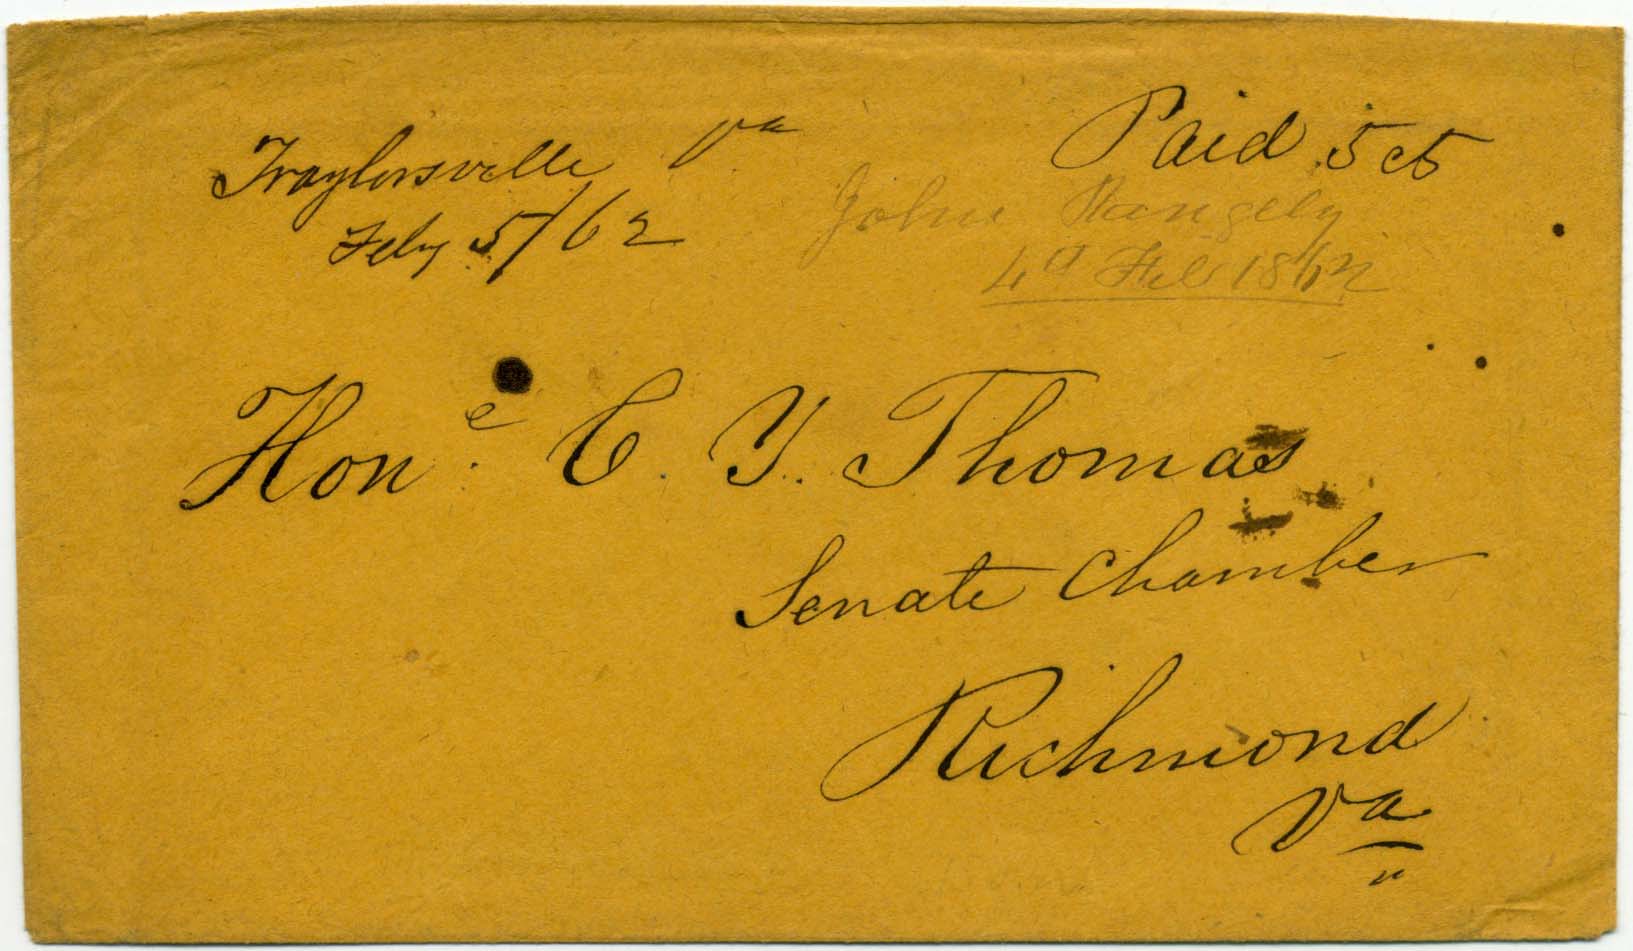 Traylorsville Va
Feby 5/62
Paid 5 cts
John Rangely
4th Feb 1862
Hone. C. Y. Thomas
Senate Chamber
Richmond
Va